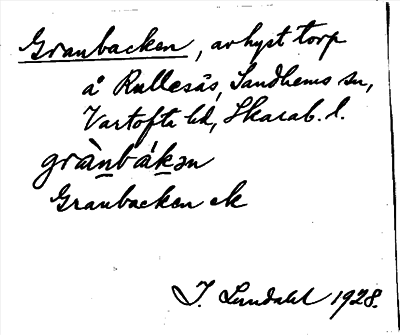 Granbacken, avhyst torp
å Rullesås, Sandhems sn,
Vartofta hd, Skarab. l.
grànbákən
Granbacken ek
I. Lundahl 1928.